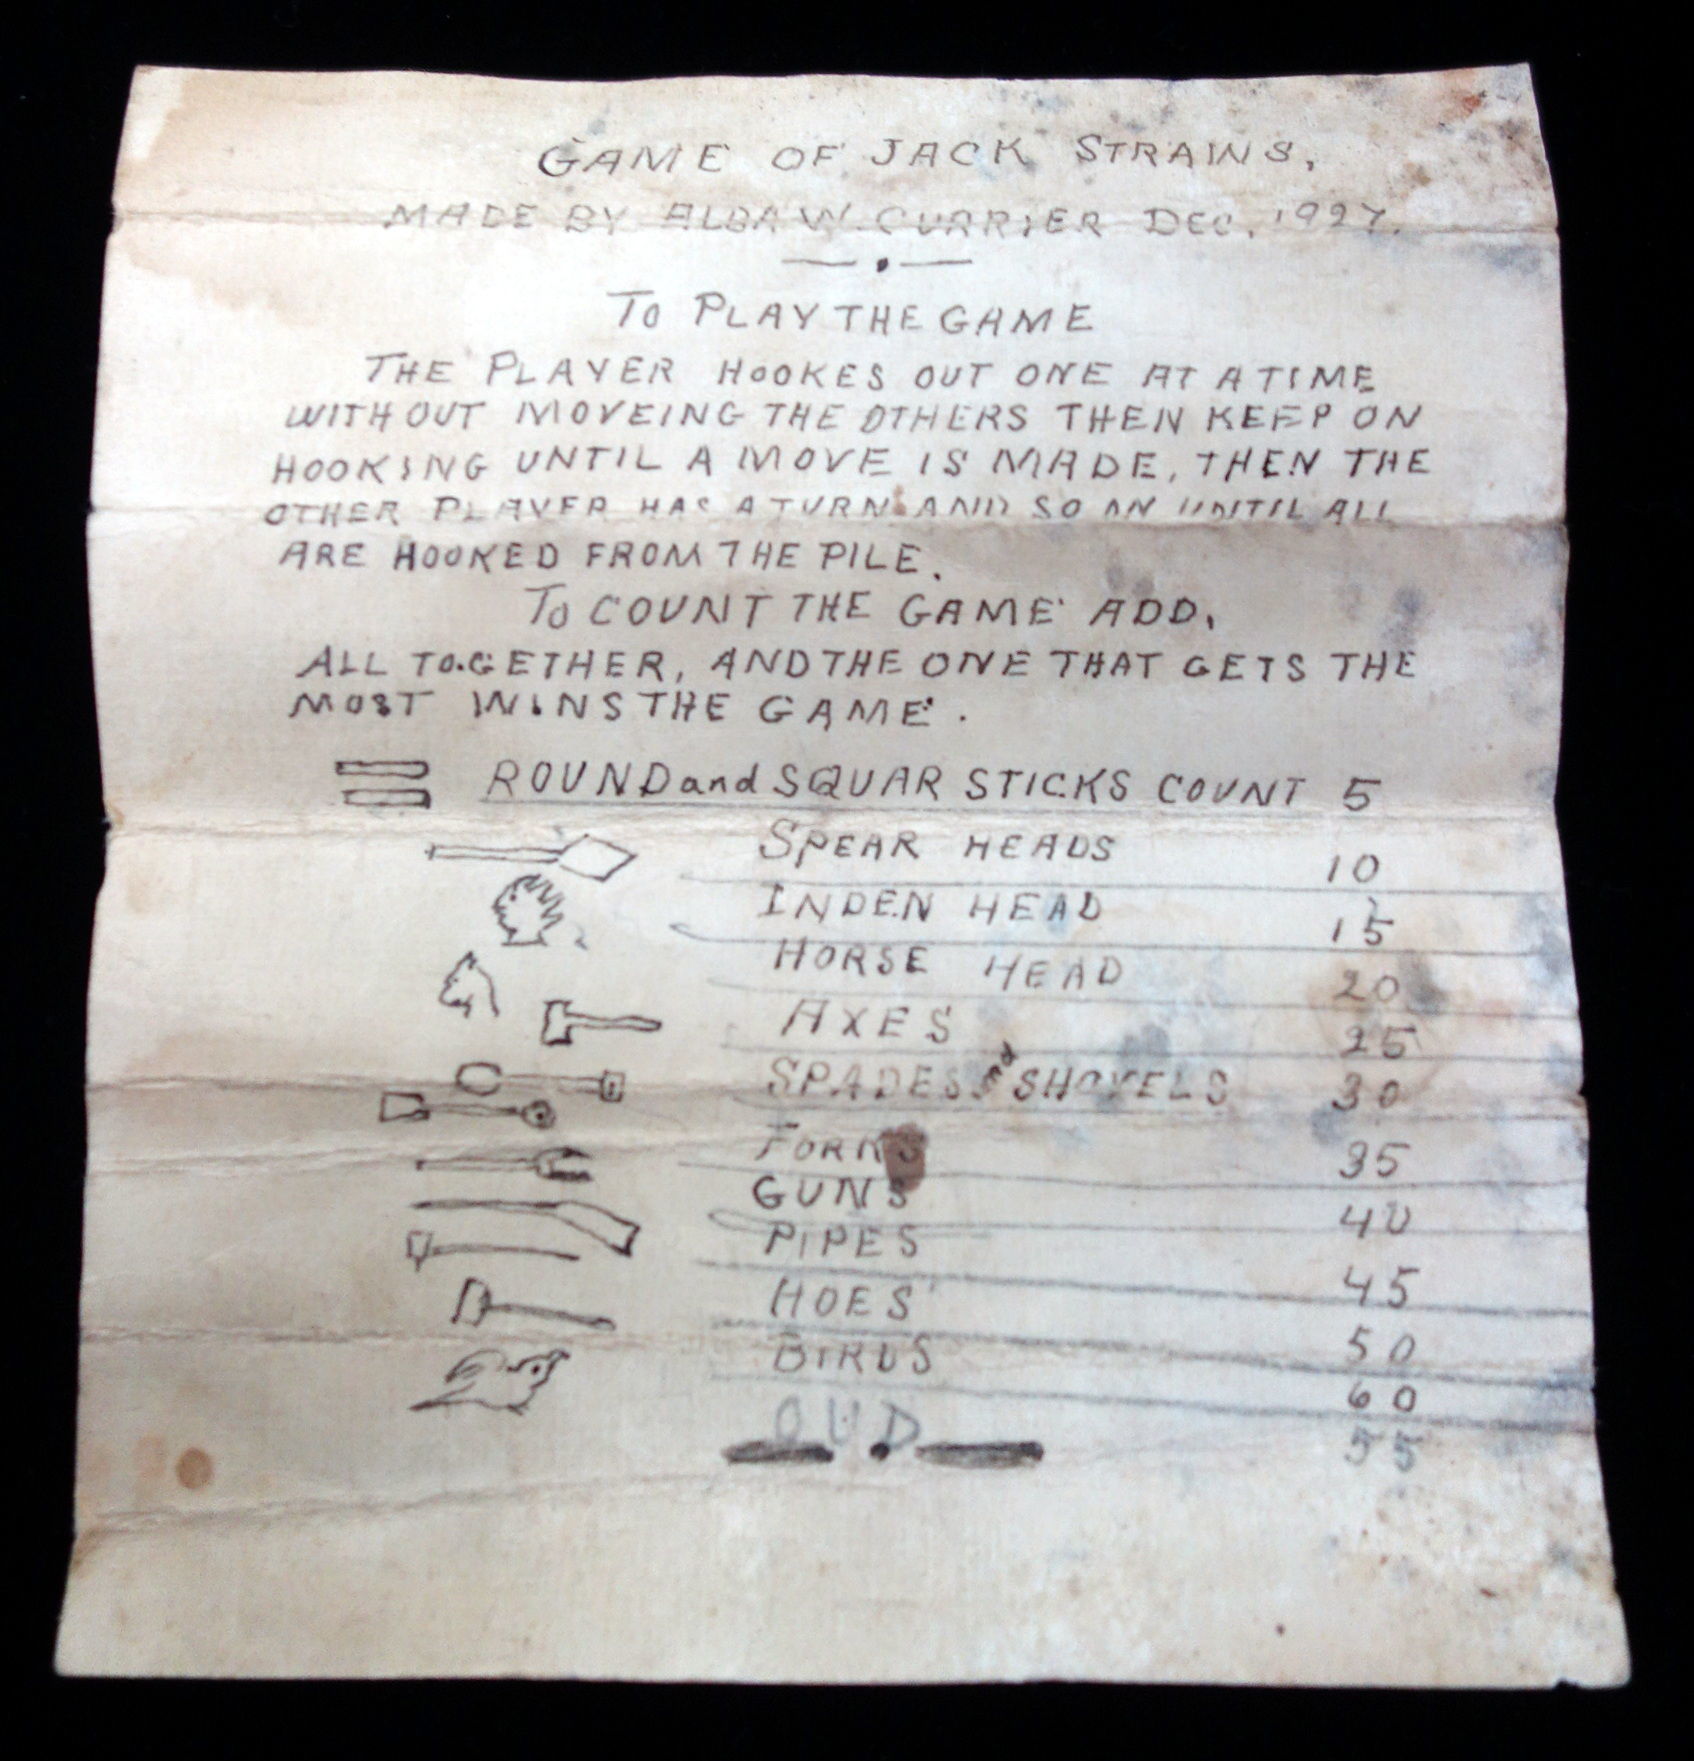 GAME OF JACK STRAWS,
MADE BY ALBA W. CURRIER DEC. 1927.
TO PLAY THE GAME
THE PLAYER HOOKES OUT ONE AT A TIME
WITHOUT MOVEING THE OTHERS THEN KEEP ON
HOOKING UNTIL A MOVE IS MADE, THEN THE
OTHER PLAYER HAS A TURN AND SO ON UNTIL ALL
ARE HOOKED FROM THE PILE.
TO COUNT THE GAME ADD,
ALL TOGETHER, AND THE ONE THAT GETS THE
MOST WINS THE GAME.
ROUND and SQUAR STICKS COUNT 5
SPEAR HEADS 10
INDEN HEAD 15
HORSE HEAD 20
AXES 25
SPADES & SHOVELS 30
FORKS 35
GUNS 40
PIPES 45
HOES 50
BIRDS 60
55